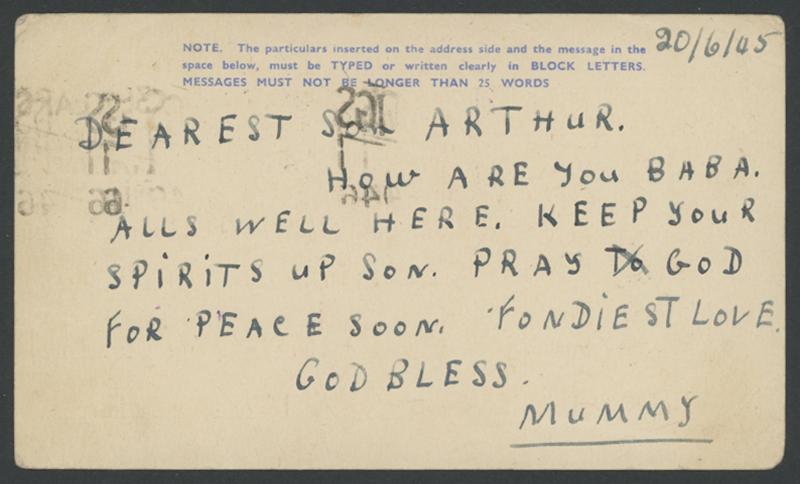 NOTE. The particulars inserted on the address side and the message in the
space below, must be TYPED or written clearly in BLOCK LETTERS.
MESSAGES MUST NOT BE LONGER THAN 25 WORDS
20/6/45
DEAREST SON ARTHUR.
HOW ARE YOU BABA.
ALLS WELL HERE. KEEP YOUR
SPIRITS UP SON. PRAY TO GOD
FOR PEACE SOON. FONDIEST LOVE.
GOD BLESS.
MUMMY